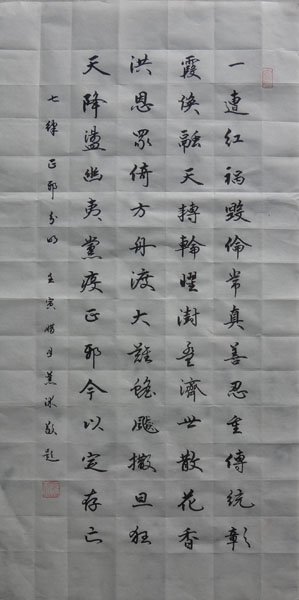 一連紅禍毀倫常真善忍重傳統彰
霞煥融天轉輪曜澍濟世散花香
洪恩眾倚方舟渡大難飈撒旦狂
天降盪幽夷黨疫正邪今以定存亡
七律 正邪分明 壬寅臘月敬題